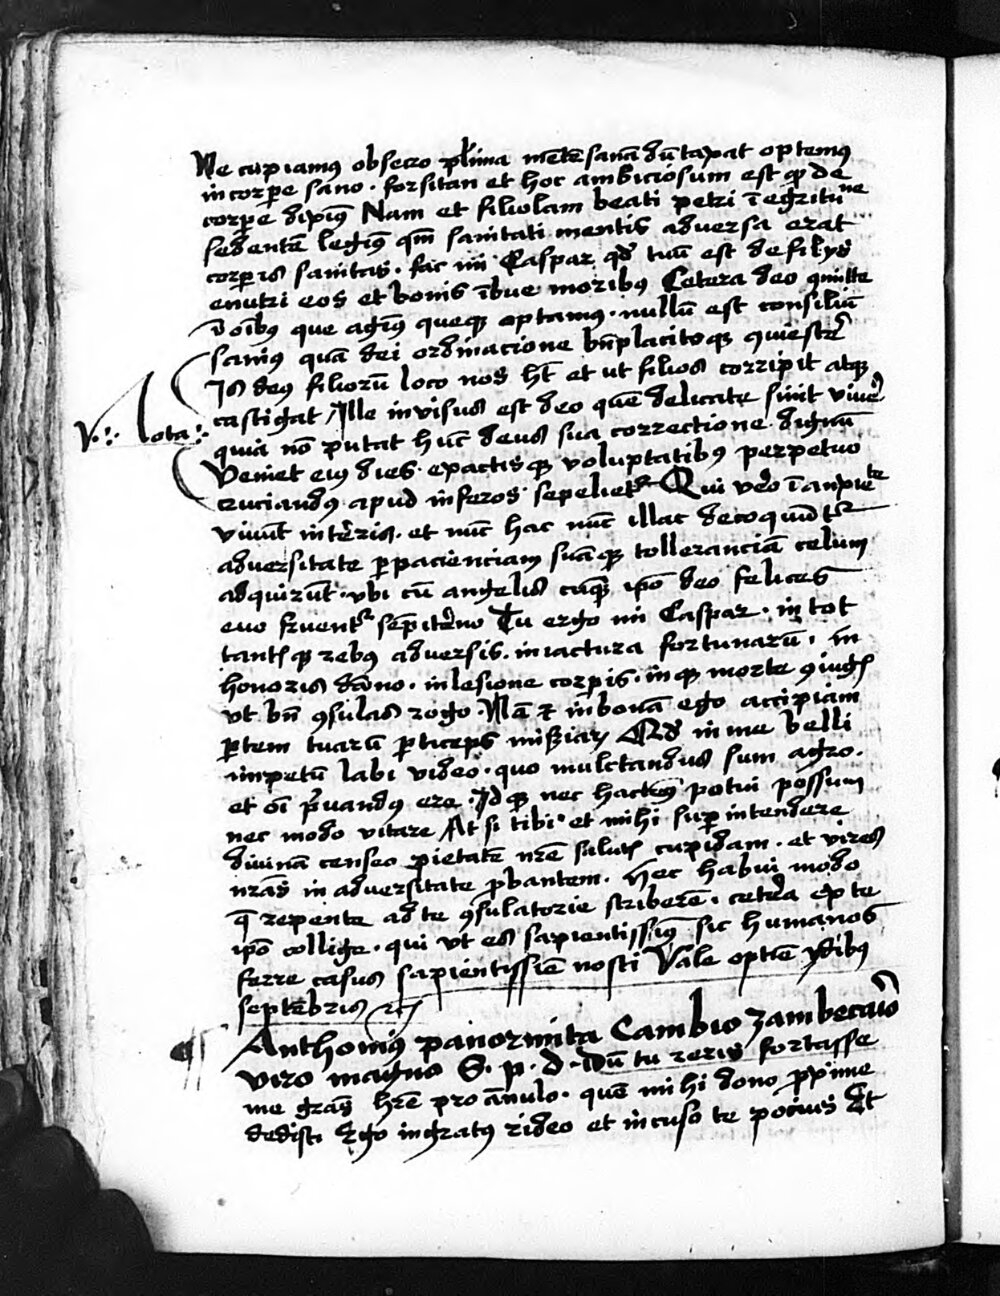 Ne cupiamus obsecro pl̄ima mētē sanā dūtaxat optemus
in corpore sano. forsitan et hoc ambiciosum est qd de
corpore dixim9 Nam et filiolam beati petri ī egritudine
sedentē legim9 qm̄ sanitati mentis adversa erat
corporis sanitas. fac mi Caspar qd tuū est de filijs
enutri eos et bonis ībue moribus Cetera deo cōmitte
ī oībus que agim9 queq3 optamus. nullū est consiliū
sanius quā dei ordinacione bn̄placitoq3 quiescere
Is deus filiorū loco nos h̄t et ut filios corripit atq3
castigat Ille invisus est deo quē delicate sinit vivere
V. Nota: quia nō putat hūc deus sua correctione dignū
Veniet eius dies. exactisq3 voluptatibus perpetuo
cruciandus apud inferos sepelietur Qui vero ī anxietate
vivūt in terris. et nūc hac nūc illac decoquūtur
adversitate per pacienciam suāq3 tolleranciā celum
adquirūt. vbi cū angelis cūq3 ip̄o deo felices
evo fruentur sempiterno Tu ergo mi Caspar. in tot
tantisq3 rebus adversis. in iactura fortunarū. in
honoris dāno. in lesione corporis. inq3 morte 9iugis
vt bn̄ 9sulas rogo. Nā et in bonā ego accipiam
partem tuarū particeps miseriarum Qd in me belli
impetū labi video. quo mulctandus sum agro.
et oī privandus ere. Id q3 nec hactenus potui possum
nec modo vitare At si tibi et mihi superintendere
divinā censeo pietatē nr̄e salutis cupidam. et vires
nr̄as in adversitate probantem. Hec habui modo
q̄ repente ad te 9sulatorie scriberē. cetera ex te
ip̄o collige. qui vt es sapientissim9 sic humanos
ferre casus sapientissime nosti Vale optīe ydibus
septēbris etc
Anthonius panormita Cambio Zambecario
viro magno S. p. d. Dū tu reris fortasse
me gratū h̄re pro ānulo. quē mihi dono proxime
dedisti Ergo ingratus rideo et incuso te pocius Et